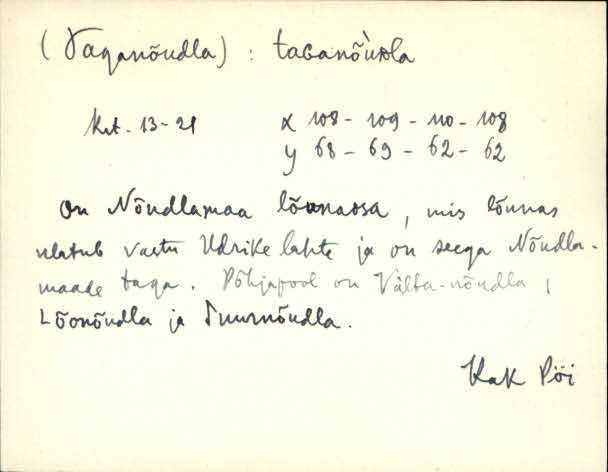 (Taganõudla) : taGanõùDla
Krt. 13-21 x 108 - 109 - 110 - 108
y 68 - 69 - 62 - 62
On Nõudlamaa lõunaosa, mis lõunas
ulatub vastu Udrike lahte ja on seega Nõudla-
maade taga. Põhjapool on Välta-nõudla,
Lõonõudla ja Suurnõudla.
KaK Pöi